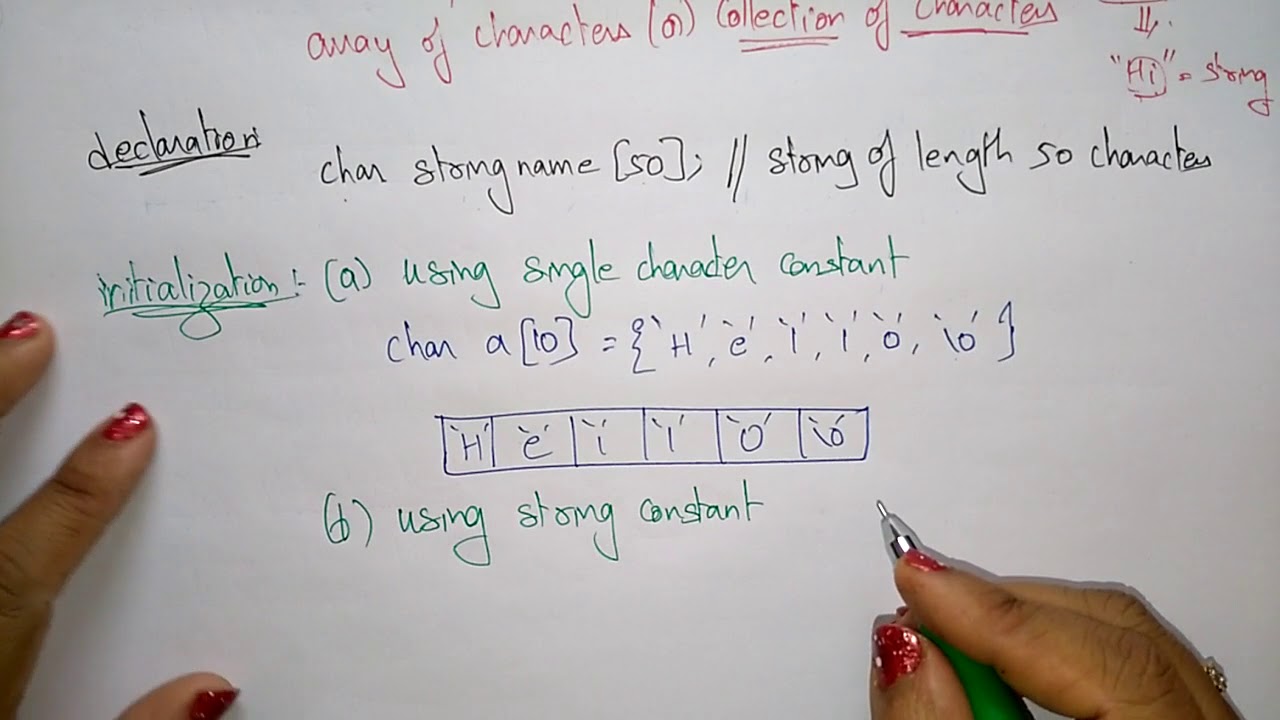 array of characters (or) collection of characters
11.
"Hi" = string
declaration
char string name [50]; // string of length 50 characters
initialization:- (a) using single character constant
char a[10] = {'H', 'e', 'l', 'l', 'o', '\0' }
'H' 'e' 'l' 'l' 'o' '\0'
(b) using string constant